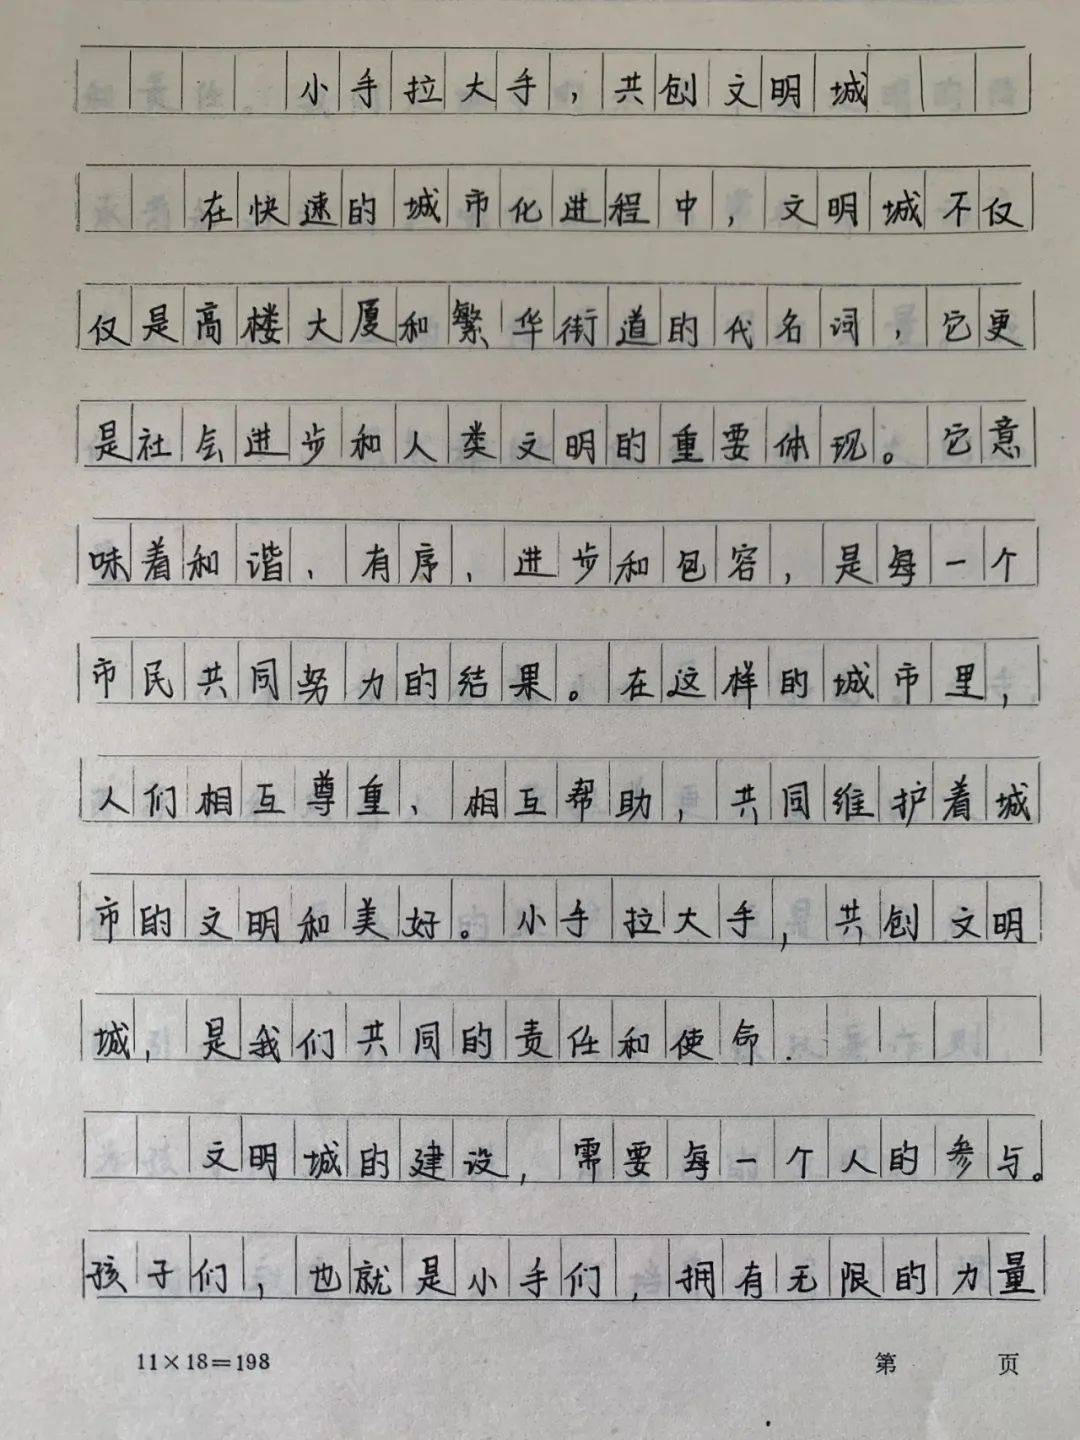 小手拉大手，共创文明城
在快速的城市化进程中，文明城不仅
仅是高楼大厦和繁华街道的代名词，它更
是社会进步和人类文明的重要体现。它意
味着和谐、有序、进步和包容，是每一个
市民共同努力的结果。在这样的城市里，
人们相互尊重、相互帮助，共同维护着城
市的文明和美好。小手拉大手，共创文明
城，是我们共同的责任和使命.
文明城的建设，需要每一个人的参与。
孩子们，也就是小手们，拥有无限的力量
11×18=198 第 页